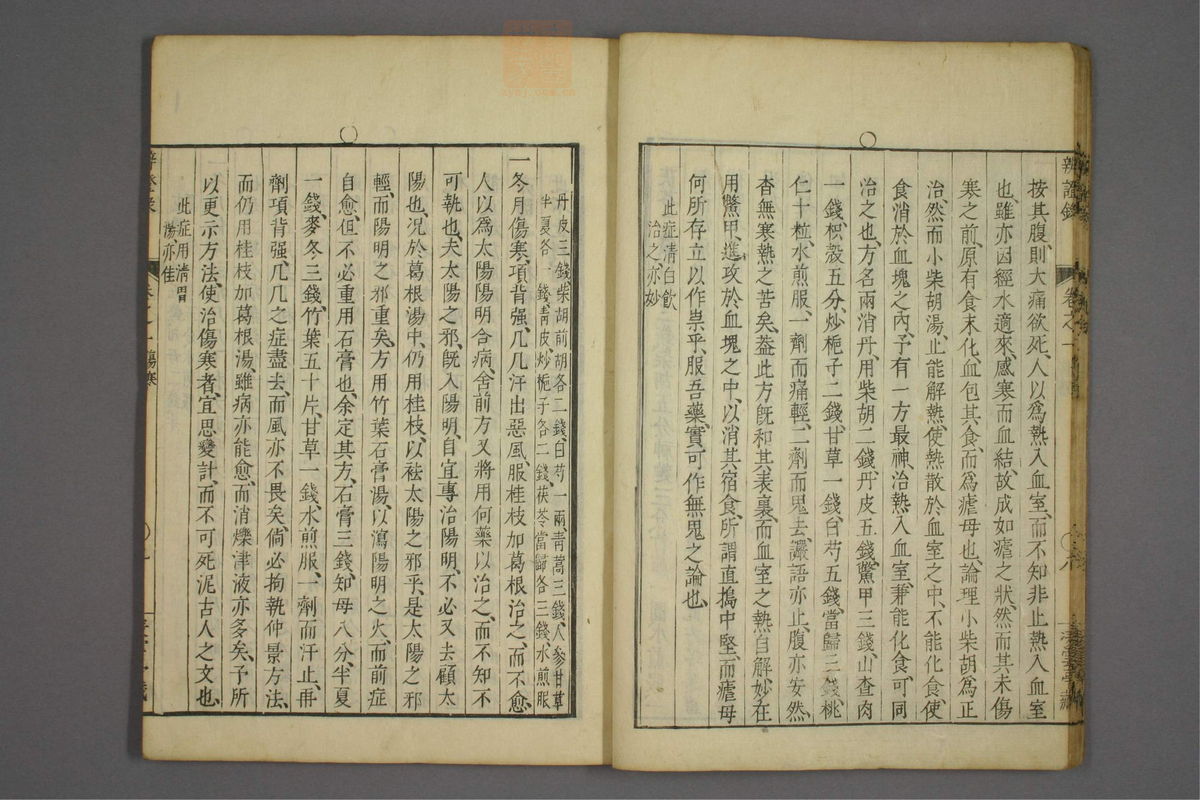 辨證錄
卷之一
按其腹則大痛欲死人以爲熱入血室而不知非止熱入血室
也雖亦因經水適來感寒而血結故成如瘧之狀然而其未傷
寒之前原有食未化血包其食而爲瘧母也論理小柴胡爲正
治然而小柴胡湯止能解熱使熱散於血室之中不能化食使
食消於血塊之內予有一方最神治熱入血室兼能化食可同
治之也方名兩消丹用柴胡二錢丹皮五錢鱉甲三錢山查肉
一錢枳殼五分炒梔子二錢甘草一錢白芍五錢當歸三錢桃
仁十粒水煎服一劑而痛輕二劑而鬼去讝語亦止腹亦安然
杳無寒熱之苦矣葢此方既和其表裏而血室之熱自解妙在
用鱉甲進攻於血塊之中以消其宿食所謂直搗中堅而瘧母
何所存立以作祟乎服吾藥實可作無鬼之論也
此症清白飲
治之亦妙
丹皮三錢柴胡前胡各二錢白芍一兩青蒿三錢人參甘草
半夏各一錢青皮炒梔子各二錢茯苓當歸各三錢水煎服
一冬月傷寒項背强几几汗出惡風服桂枝加葛根治之而不愈
人以爲太陽陽明合病舍前方又將用何藥以治之而不知不
可執也夫太陽之邪既入陽明自宜專治陽明不必又去顧太
陽也况於葛根湯中仍用桂枝以袪太陽之邪乎是太陽之邪
輕而陽明之邪重矣方用竹葉石膏湯以瀉陽明之火而前症
自愈但不必重用石膏也余定其方石膏三錢知母八分半夏
一錢麥冬三錢竹葉五十片甘草一錢水煎服一劑而汗止再
劑項背强几几之症盡去而風亦不畏矣倘必拘執仲景方法
而仍用桂枝加葛根湯雖病亦能愈而消爍津液亦多矣予所
以更示方法使治傷寒者宜思變計而不可死泥古人之文也
此症用清胃
湯亦佳
卷之一 傷寒